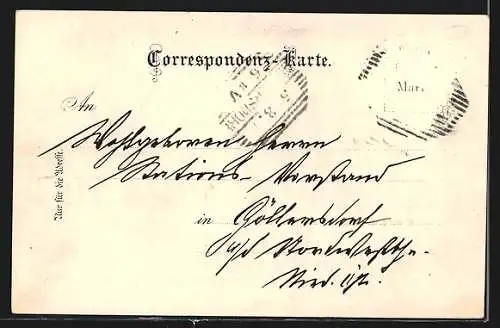 Correspondenz-Karte.
Mar.
An
Wohlgeboren Herrn
Stations-Vorstand
in Göllersdorf
a/d Nordwestb.
Nied. Öst.
Nur für die Adresse.